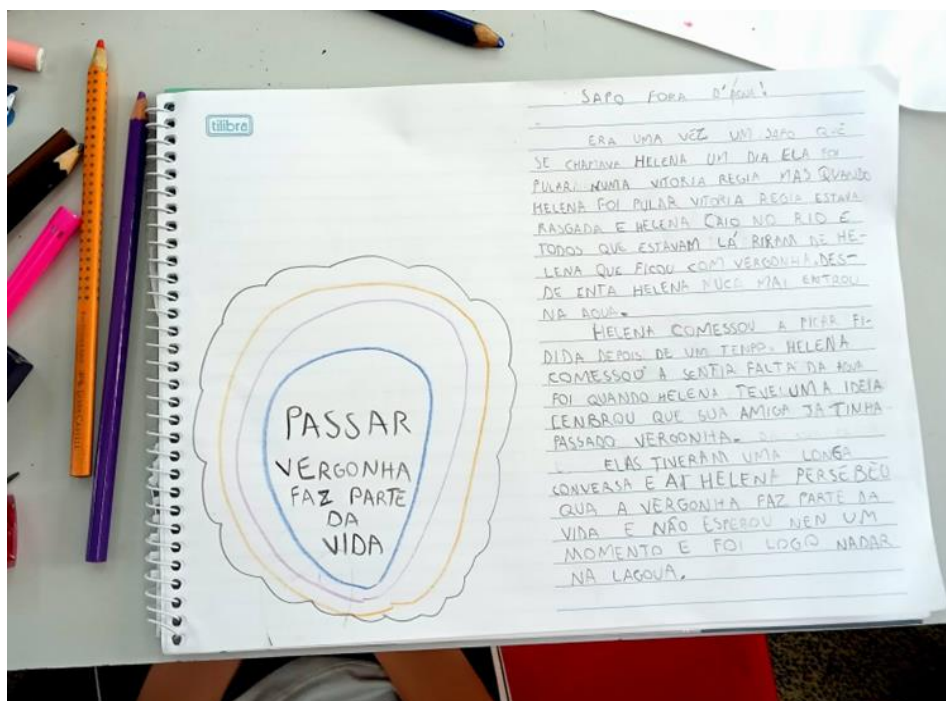 tilibra
PASSAR
VERGONHA
FAZ PARTE
DA
VIDA
SAPO FORA D'ÁGUA!
ERA UMA VEZ UM SAPO QUE
SE CHAMAVA HELENA UM DIA ELA FOI
PULAR NUMA VITORIA REGIA MAS QUANDO
HELENA FOI PULAR VITORIA REGIA ESTAVA
RASGADA E HELENA CAIO NO RIO E
TODOS QUE ESTAVAM LÁ RIRAM DE HE-
LENA QUE FICOU COM VERGONHA, DES-
DE INTA HELENA NUCA MAI ENTROU
NA AGUA.
HELENA COMESSOU A FICAR FI-
DIDA DEPOIS DE UM TEMPO. HELENA
COMESSOU A SENTIA FALTA DA AGUA
FOI QUANDO HELENA TEVE UMA IDEIA
LENBROU QUE SUA AMIGA JA TINHA
PASSADO VERGONHA.
ELAS TIVERAM UMA LONGA
CONVERSA E AI HELENA PERSEBEU
QUA A VERGONHA FAZ PARTE DA
VIDA E NÃO ESPEROU NEN UM
MOMENTO E FOI LOGO NADAR
NA LAGOUA.